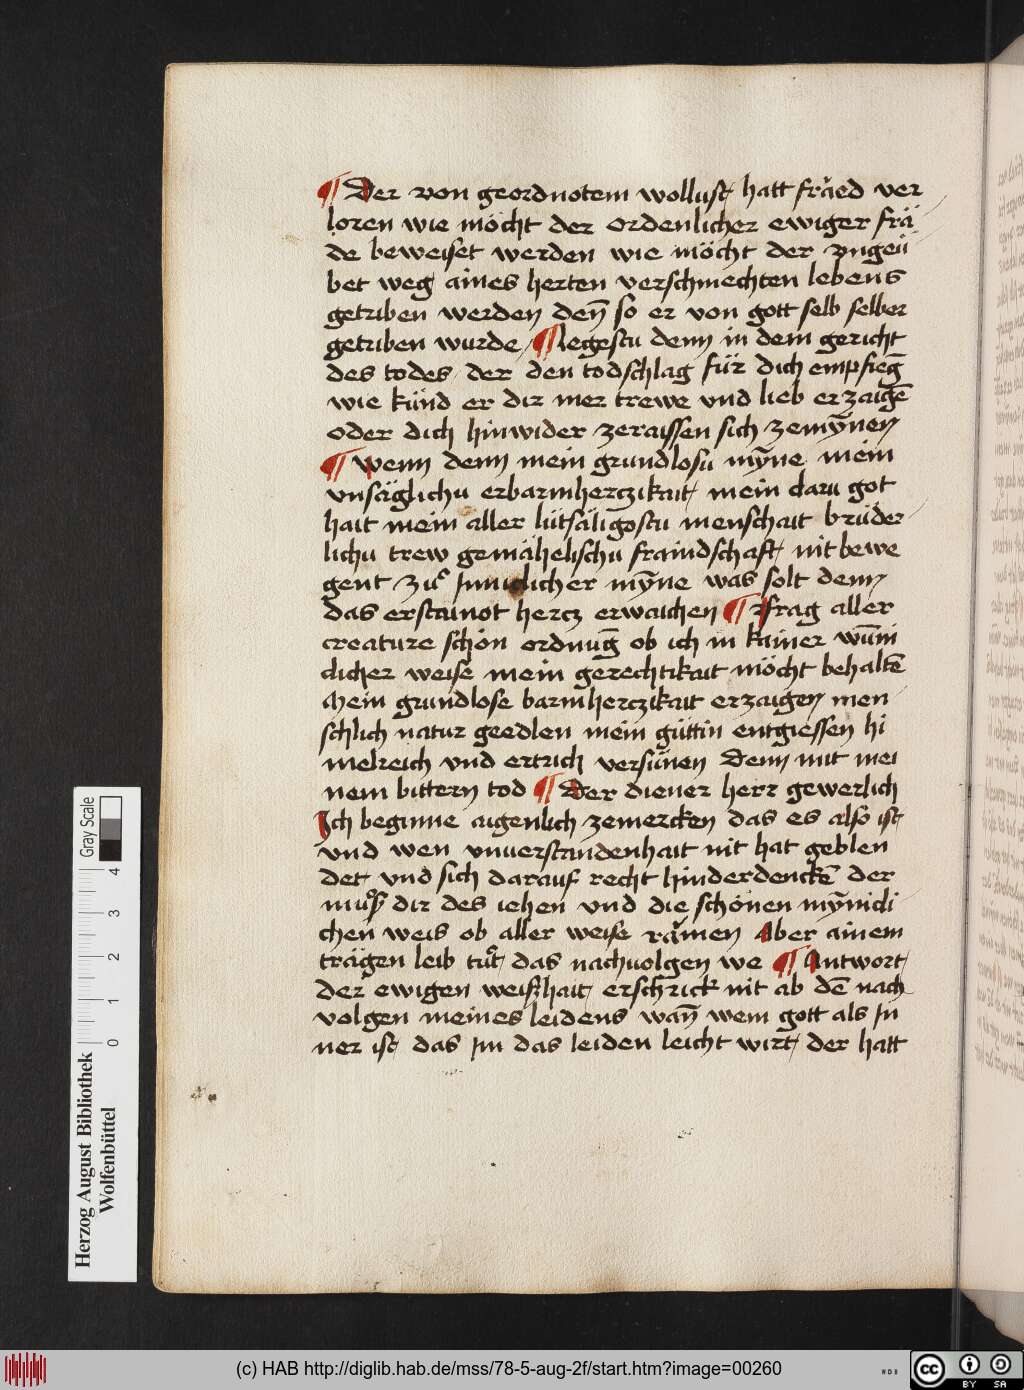 ¶ Der von geordnotem wollust hatt fräed ver
loren wie möcht der ordenlicher ewiger frä
de beweiset werden wie möcht der vngeü
bet weg aines herten verschmechten lebens
getriben werden den̄ so er von gott selb selber
getriben wurde ¶ Legestu denn in dem gericht
des todes der den todschlag für dich empfieḡ
wie künd er dir mer trewe vnd lieb erzaigē
oder dich hinwider zeraissen sich zemȳnen
¶ wenn denn mein grundlosu mȳne mein
vnsäglichu erbarmherczikait mein daru got
hait mein aller lütsäligostu menschait brüder
lichu trew gemähelischu fraindschaft nit bewe
gent zuͦ Inniclicher mȳne was solt denn
das erstainot hercz erwaichen ¶ frag aller
creature schön ordnuḡ ob ich in kainer wūni
clicher weise mein gerechtikait möcht behaltē
Mein grundlose barmherczikait erzaigen men
schlich natur geedlen mein güttin entgiessen hi
melreich vnd ertrich versünen denn mit mei
nem bittern tod ¶ Der diener herr gewerlich
Ich beginne aigenlich zemercken das es also ist
vnd wen vnuerstandenhait nit hat geblen
det vnd sich darauf recht hinderdenckē der
muͦß dir des iehen vnd die schönen mȳnicli
chen weis ob aller weise rämen Aber ainem
trägen leib tuͦt das nachuolgen we ¶ Antwort
der ewigen weißhait erschrick nit ab dē nach
volgen meines leidens wan̄ wem gott als In
ner ist das Im das leiden leicht wirt der hatt
Herzog August Bibliothek
Wolfenbüttel
Gray Scale
0 1 2 3 4
(c) HAB http://diglib.hab.de/mss/78-5-aug-2f/start.htm?image=00260
WDB
cc
BY SA